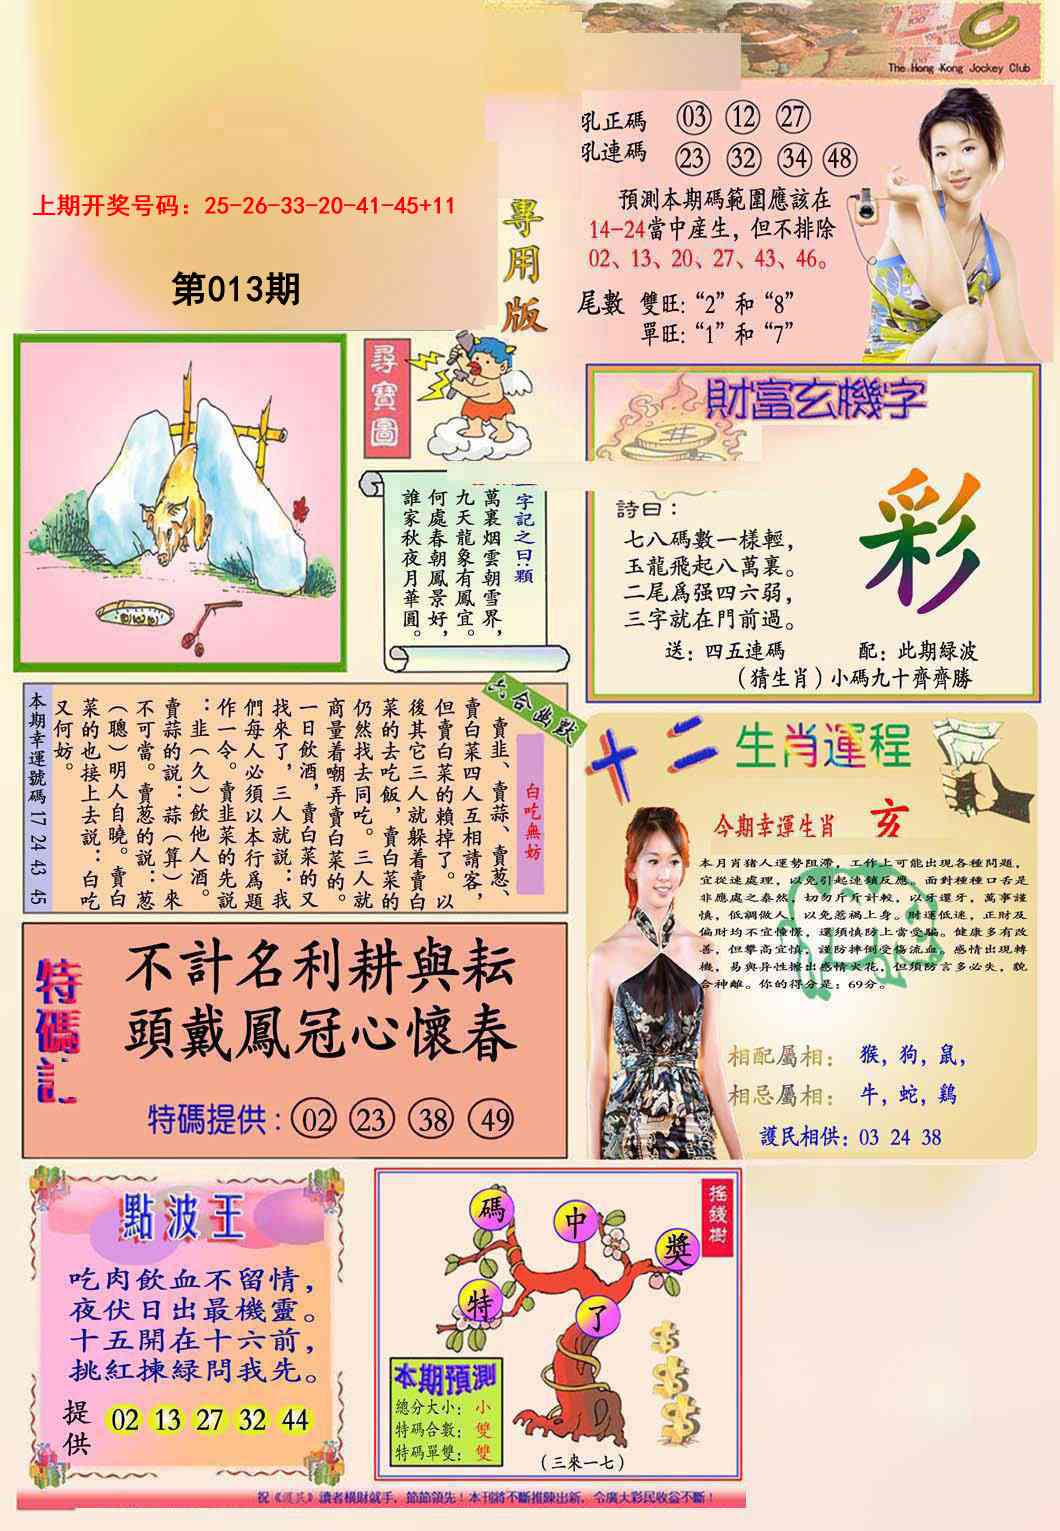 The Hong Kong Jockey Club
上期开奖号码：25-26-33-20-41-45+11
第013期
專用版
吼正碼 03 12 27
吼連碼 23 32 34 48
預測本期碼範圍應該在
14-24當中産生，但不排除
02、13、20、27、43、46。
尾數 雙旺：“2”和“8”
單旺：“1”和“7”
尋寶圖
字記之曰：顆
萬裏烟雲朝雪界，
九天龍象有鳳宜。
何處春朝鳳景好，
誰家秋夜月華圓。
財富玄機字
詩曰：
七八碼數一樣輕，
玉龍飛起八萬裏。
二尾爲强四六弱，
三字就在門前過。
彩
送：四五連碼 配：此期緑波
（猜生肖）小碼九十齊齊勝
六合幽默
白吃無妨
賣韭、賣蒜、賣葱、
賣白菜四人互相請客，
但賣白菜的賴掉了。以
後其它三人就躲着賣白
菜的去吃飯，賣白菜的
仍然找去同吃。三人就
商量着嘲弄賣白菜的。
一日飲酒，賣白菜的又
找來了，三人就説：我
們每人必須以本行爲題
作一令。賣韭菜的先説
：韭（久）飲他人酒。
賣蒜的説：蒜（算）來
不可當。賣葱的説：葱
（聰）明人自曉。賣白
菜的也接上去説：白吃
又何妨。
本期幸運號碼 17 24 43 45
十二生肖運程
今期幸運生肖 亥
本月肖猪人運勢阻滯，工作上可能出現各種問題，
宜從速處理，以免引起連鎖反應。面對種種口舌是
非應處之泰然，切勿斤斤計較，以牙還牙，萬事謹
慎，低調做人，以免惹禍上身。財運低迷，正財及
偏財均不宜憧憬，還須慎防上當受騙。健康多有改
善，但攀高宜慎，謹防摔倒受傷流血。感情出現轉
機，易與异性擦出感情火花，但須防言多必失，貌
合神離。你的得分是：69分。
相配屬相： 猴，狗，鼠，
相忌屬相： 牛，蛇，鷄
護民相供：03 24 38
特碼記
不計名利耕與耘
頭戴鳳冠心懷春
特碼提供：02 23 38 49
點波王
吃肉飲血不留情，
夜伏日出最機靈。
十五開在十六前，
挑紅揀緑問我先。
提供 02 13 27 32 44
搖錢樹
碼 中 獎
特 了
本期預測
總分大小：小
特碼合數：雙
特碼單雙：雙
（三來一七）
祝《護民》讀者橫財就手，節節領先！本刊將不斷推陳出新，令廣大彩民收益不斷！